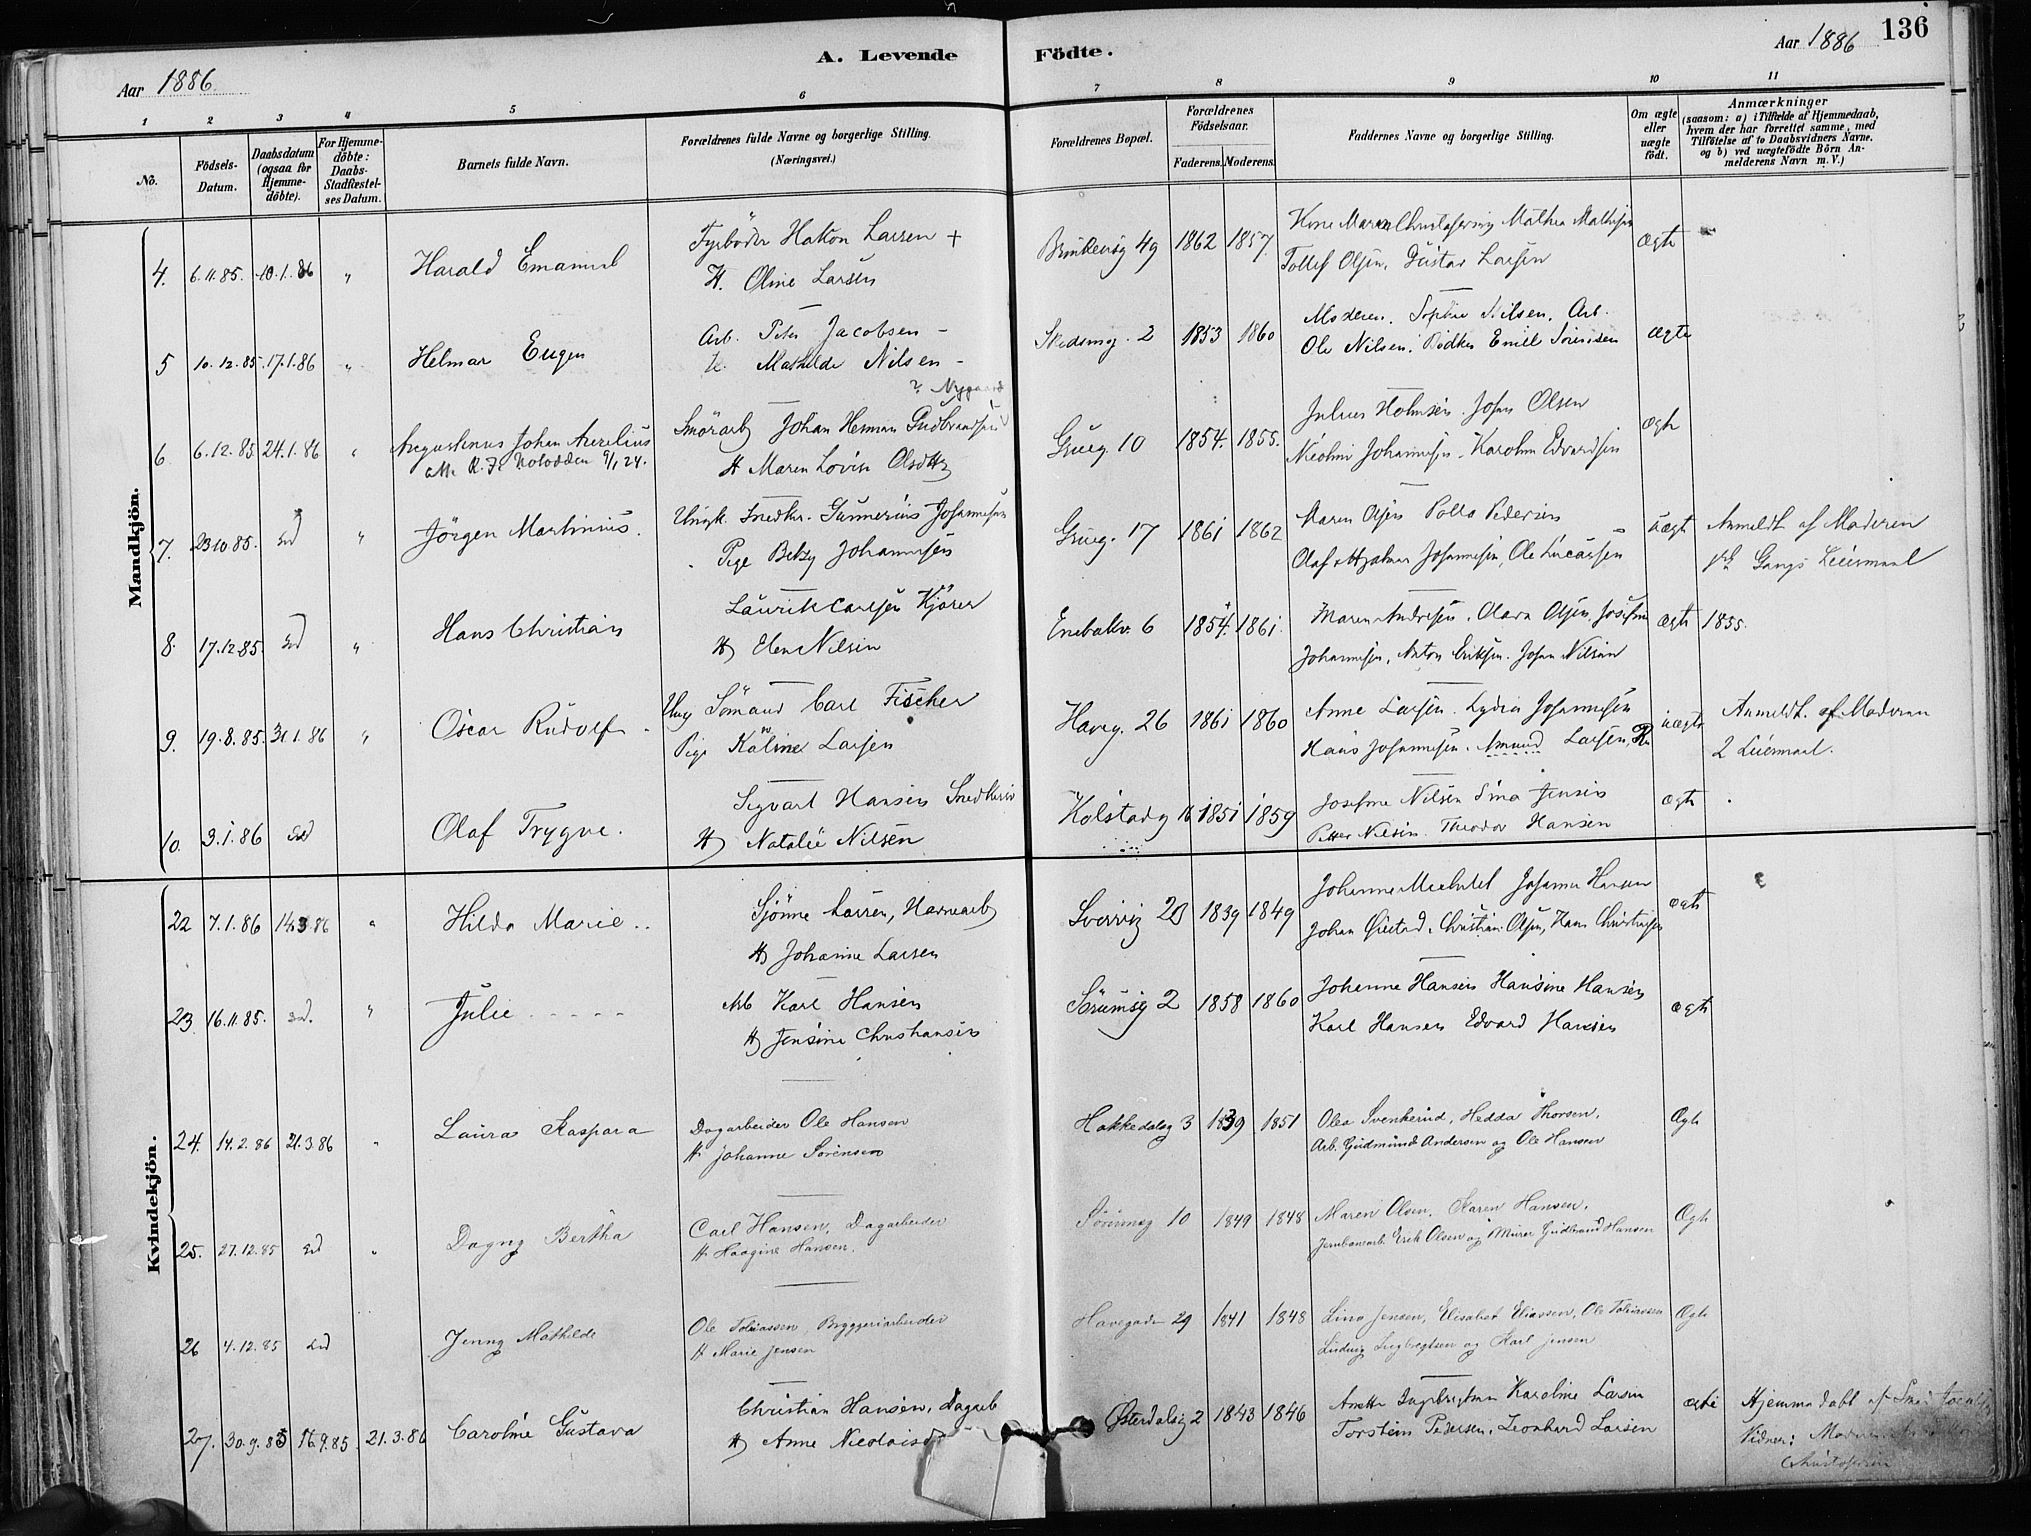 Aar 1886.
A. Levende Födte.
Aar 1886
136
1 2 3 4 5 6 7 8 9 10 11
No.
Födsels-Datum.
Daabsdatum (ogsaa for Hjemme-döbte).
For Hjemme-döbte: Daabs-Stadfæstel-ses Datum.
Barnets fulde Navn.
Forældrenes fulde Navne og borgerlige Stilling. (Næringsvei.)
Forældrenes Bopæl.
Forældrenes Födselsaar.
Faderens. Moderens.
Faddernes Navne og borgerlige Stilling.
Om ægte eller uægte födt.
Anmærkninger
(saasom: a) i Tilfælde af Hjemmedaab, hvem der har forrettet samme, med Tilföielse af to Daabsvidners Navne. og b) ved uægtefödte Börn An-melderens Navn m. V.)
Mandkjön.
Fyrböder Hakon Larsen +
Kone Maren Christofersen Mathea Mathisen
4. 6.11.85. 10.1.86 " Harald Emanuel
H. Oline Larsen
49 1862 1857.
Tollef Olsen, Gustav Larsen
ægte
Arb. Peter Jacobsen -
Moderen. Sophie Nilsen. Arb.
5 10.12.85. 17.1.86 " Helmar Eugen
H. Mathilde Nilsen -
Skedsmog. 2 1853 1860
Ole Nilsen. Bödker Emil Sörensen
ægte
? Nygaard
Johan Herman Gudbrandsen
Julius Holmsen. Johan Olsen
6. 6.12.85 24.1.86 " Augustinus Johan Aurelius
att. R. F. Notodden 9/1 24.
H Maren Lovise
Grueg. 10 1854. 1855.
Nicoline Johannesen. Karoline Edvardsen
ægte
Ungk. Snedker. Gunnerius Johannesen
Maren Olsen Pedersen
7. 23.10.85. Ed " Jörgen Martinius.
Pige Betzy Johannesen
Grueg. 17 1861 1862
Olaf Hjalmar Johannesen, Ole Lucassen
uægte
Anmeldt af Moderen
Gangs Leiermaal
Laurits Carlsen Kjörer
Maren Andresen. Olava Olsen. Josefine
8. 17.12.85. Ed " Hans Christian
H Elen Nilsen
Enebakv. 6 1854. 1861.
Johannesen. Anton Eriksen. Johan Nilsen
ægte 1855.
Ung Sömand Carl Fischer
Anne Larsen. Lydia Johannesen
9. 19.8.85. 31.1.86 " Oscar Rudolf
Pige Karline Larsen
Haveg. 26 1861 1860
Hans Johannesen. Amund Larsen,
uægte
Anmeldt af Moderen
2 Leiermaal.
Sigvart Hansen Snedker
Josefine Nilsen Sina Jensen
10. 3.1.86 Ed Olaf Trygve.
H Natalie Nilsen
Kolstadg 1851 1859
Petter Nilsen. Theodor Hansen
ægte
Kvindekjön.
Sjönne Larsen, Havnearb
Johanne Johanna Hansen
22 7.1.86 14.3.86 " Hilda Marie..
H Johanne Larsen
20 1839 1849
Johan Christian Olsen, Hans Christiansen
ægte
Arb Karl Hansen
Johanne Hansen Hansine Hansen
23 16.11.85. Ed. " Julie
H Jensine Christiansen
Sörumsg 2 1858 1860
Karl Hansen Edvard Hansen
ægte
24. 14.2.86 21.3.86 " Laura Kaspara
Dagarbeider Ole Hansen
H Johanne Sörensen
Hakkedalsg 3 1839 1851
Olea Svenkerud, Hedda Thorsen,
Arb. Gudmund Andersen og Ole Hansen
Ægte
25. 27.12.85 Ed " Dagny Bertha
Carl Hansen, Dagarbeider
H Haagine Hansen.
Sörumsg 10 1849 1848
Maren Olsen, Karen Hansen,
Jernbanearb. Erik Olsen og Murer Gudbrand Hansen
Ægte
26 4.12.85 Ed Jenny Mathilde
Ole Tobiassen, Bryggeriarbeider
H Marie Jensen
Havegaden 29 1841 1848
Lina Jensen, Elisabet Eliassen, Ole Tobiassen
Ludvig og Karl Jensen
Ægte
Christian Hansen, Dagarb
Anette Karoline Larsen
27. 30.9.85 21.3.86 Caroline Gustava
H Anne Nicolaisd
Østerdalsg 2 1843 1846
Torstein Pedersen, Leonhard Larsen
ægte
Hjemmedöbt af
Vidner: Moderen
Christofersen